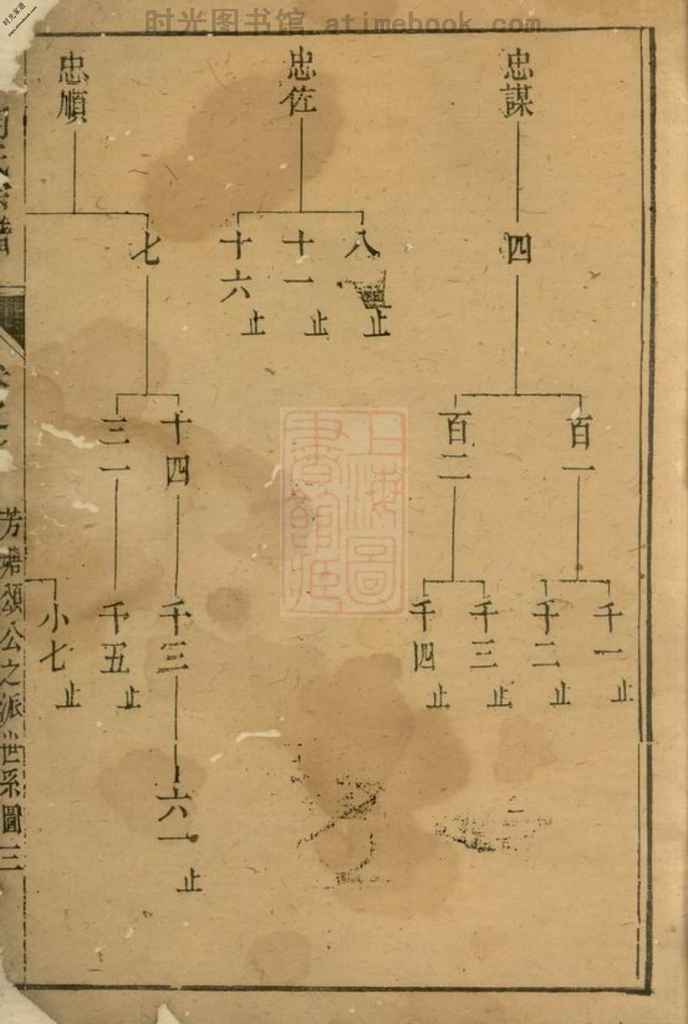 时光图书馆 atimebook.com
时光家谱
忠謀
四
百一
千一
止
千二
止
百二
千三
止
千四
止
忠佐
八
止
十一
止
十六
止
忠順
七
十四
千三
六一
止
三一
千五
止
小七
止
芳
頌公之派世系圖
三
上海圖書館藏